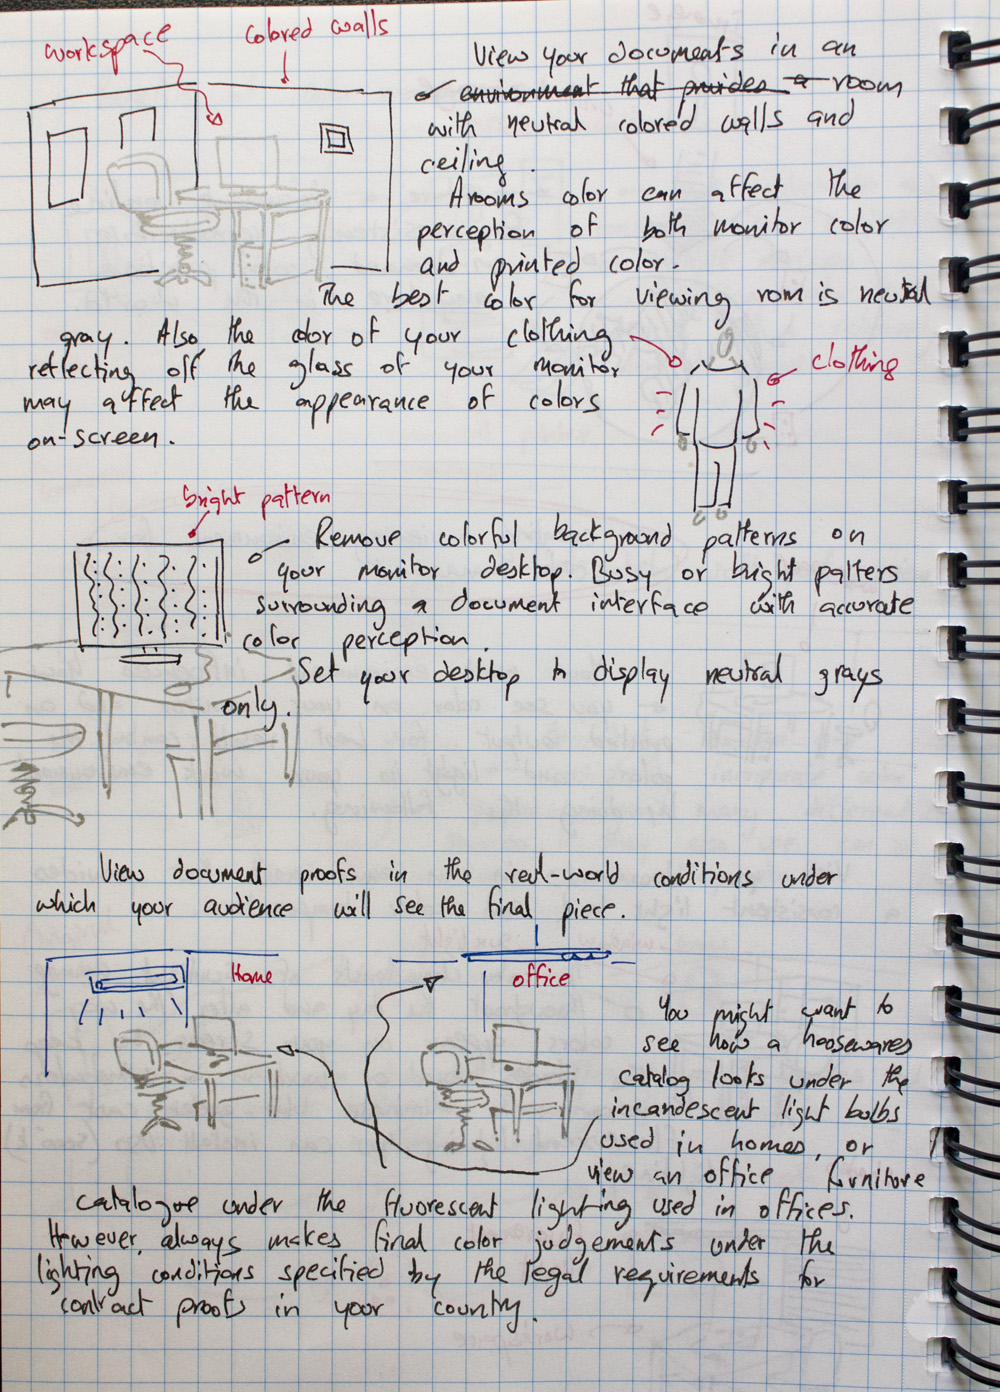 workspace
colored walls
View your documents in an
environment that provides a room
with neutral colored walls and
ceiling.
A rooms color can affect the
perception of both monitor color
and printed color.
The best color for viewing room is neutral
gray. Also the color of your clothing
reflecting off the glass of your monitor
may affect the appearance of colors
on-screen.
clothing
bright pattern
Remove colorful background patterns on
your monitor desktop. Busy or bright patters
surrounding a document interface with accurate
color perception.
Set your desktop to display neutral grays
only.
View document proofs in the real-world conditions under
which your audience will see the final piece.
Home
office
You might want to
see how a housewares
catalog looks under the
incandescent light bulbs
used in homes, or
view an office furniture
catalogue under the fluorescent lighting used in offices.
However, always makes final color judgements under the
lighting conditions specified by the legal requirements for
contract proofs in your country.